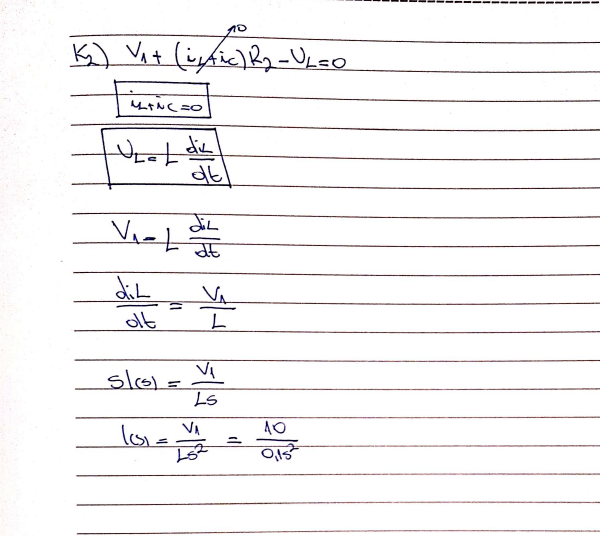 K2) V1 + (iL+iC)R2 - UL = 0
0
iL+iC = 0
UL = L diL/dt
V1 = L diL/dt
diL/dt = V1/L
SI(s) = V1/LS
I(s) = V1/LS² = 10/0,1S²